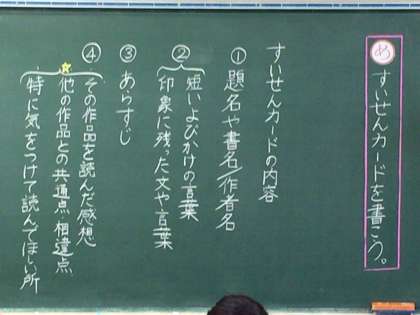 め すいせんカードを書こう。
すいせんカードの内容
① 題名や書名/作者名
② 短いよびかけの言葉
印象に残った文や言葉
③ あらすじ
④ その作品を読んだ感想
☆他の作品との共通点・相違点
特に気をつけて読んでほしい所